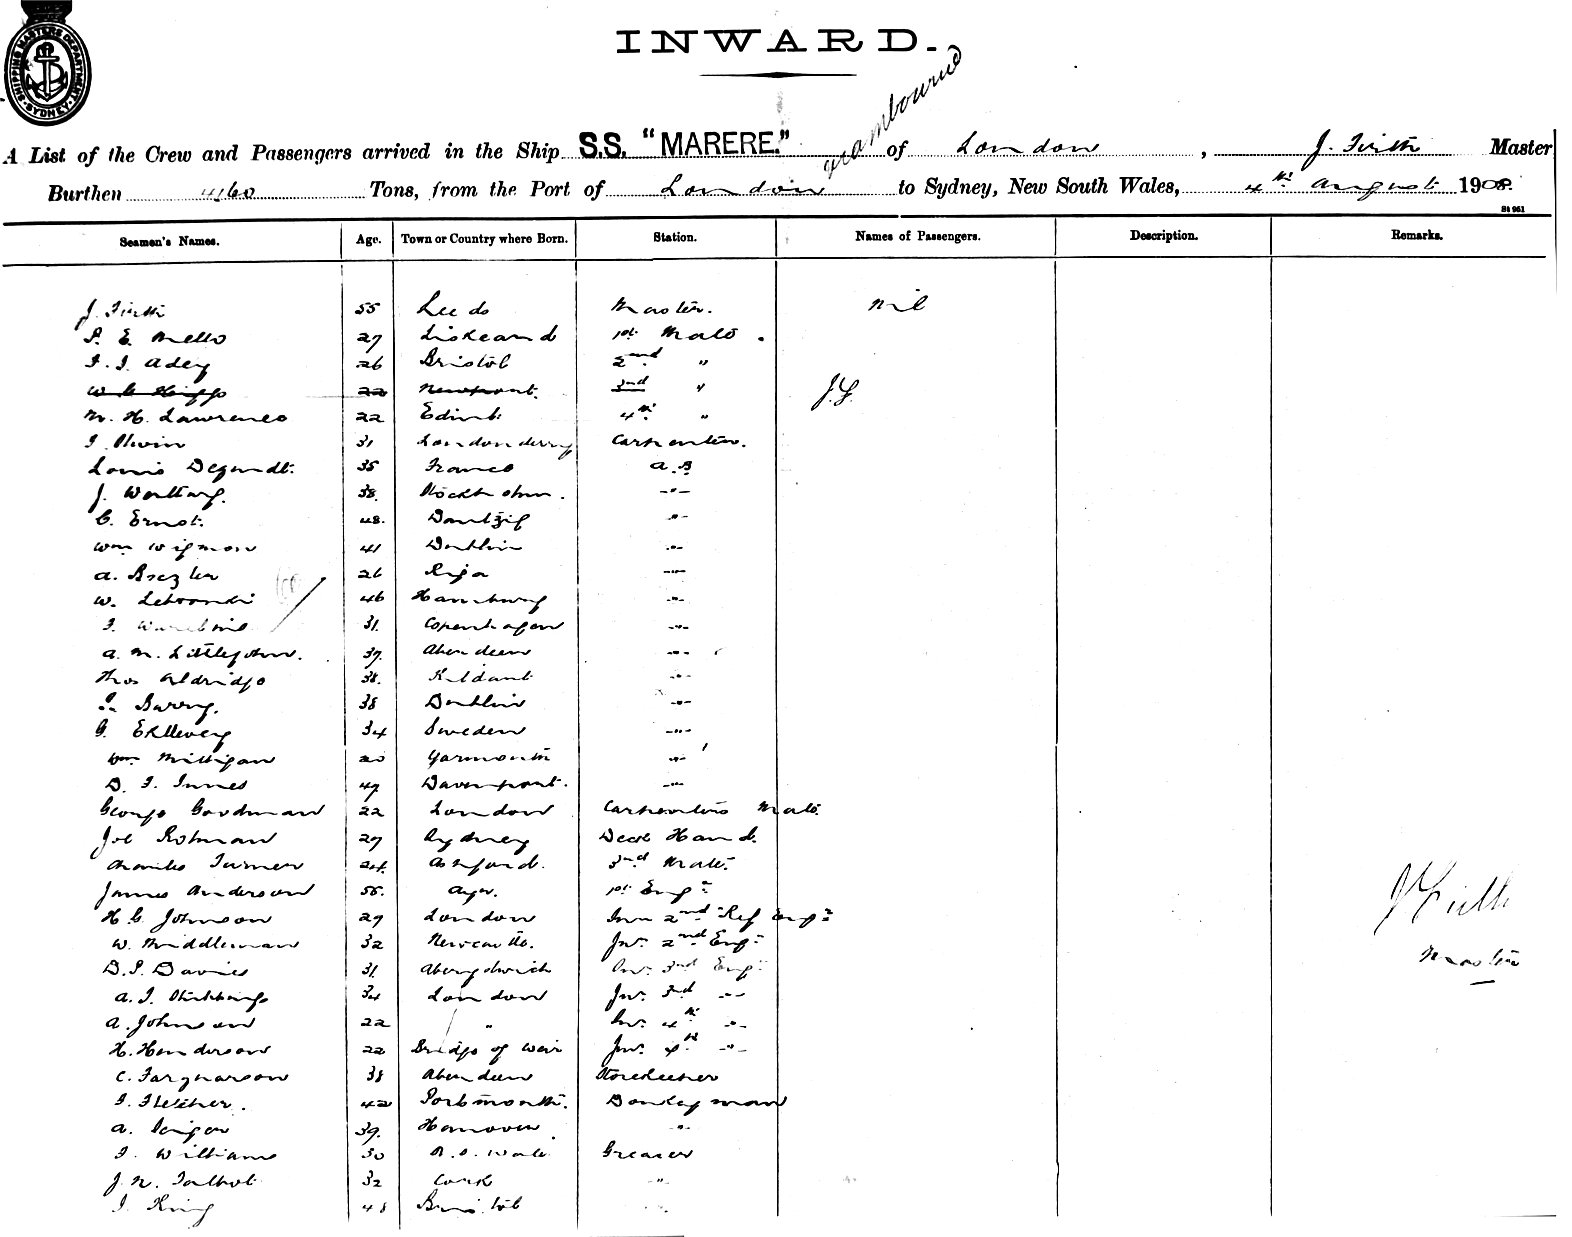 SHIPPING MASTERS DEPARTMENT SYDNEY
INWARD.
A List of the Crew and Passengers arrived in the Ship S.S. "MARERE." of London, J. Firth Master
Burthen 4160 Tons, from the Port of London to Sydney, New South Wales, 4th August 1908.
St 961
Seamen's Names. Age. Town or Country where Born. Station. Names of Passengers. Description. Remarks.
J. Firth 55 Leeds Master. nil
P. E. Mello 27 Liskeard 1st Mate.
Adey 26 Bristol 2nd "
22 Newport. 3rd " J.F.
H. Lawrence 22 Edinb 4th "
31 Londonderry Carpenter.
Louis 35 France A.B.
J. 38. Stockholm. -"-
C. Ernst. 48. Dantzig -"-
Wm Wigmore 41 Dublin -"-
A. 26 Riga -"-
W. 46 Hamburg -"-
31. Copenhagen -"-
A. M. Littlejohn. 37. Aberdeen -"-
Thos Aldridge 38. -"-
Barry. 38 Dublin -"-
34 Sweden -"-
Wm Milligan 20 Yarmouth -"-
D. J. Innes 47 Davenport. -"-
George Goodman 22 London Carpenters Mate.
Joe Rotman 27 Sydney Deck Hand.
Charles Turner 24. Ashford. 3rd Mate.
James Anderson 55. Ayr. 1st Engr
H. C. Johnson 27 London 2nd Ref Engr
W. Middleman 32 Newcastle. Jnr. 2nd Engr
D. J. Davies 31. Snr. 3rd Engr
A. J. 34 London Jnr. 3rd -"-
A. Johnson 22 " Snr. 4th -"-
H. Henderson 22 Bridge of Weir Jnr. 4th -"-
C. Farquharson 38 Aberdeen Storekeeper
Fletcher. 42 Portsmouth. Donkeyman
A. 39. Hanover. "
Williams 30 Greaser
J. N. Talbot 32 Cork "
King 48 Bristol "
J Firth
Master